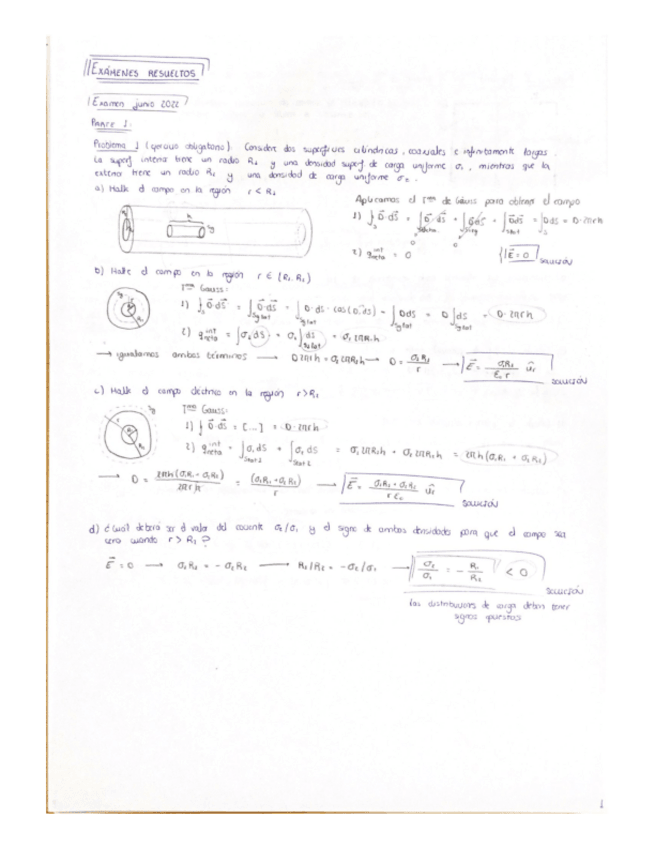 EXÁMENES RESUELTOS
Examen junio 2022
PARTE 1:
Problema 1 (ejercicio obligatorio). Considere dos superficies cilíndricas, coaxiales e infinitamente largas.
La superf. interna tiene un radio R₁ y una densidad superf. de carga uniforme σ₁, mientras que la
externa tiene un radio R₂ y una densidad de carga uniforme σ₂.
a) Halle el campo en la región r < R₁
Aplicamos el Tma de Gauss para obtener el campo
1) ∫ D·ds = ∫ D·ds + ∫ D·ds + ∫ D·ds = ∫ D ds = D·2πrh
2) q int neta = 0
E = 0 SOLUCIÓN
b) Halle el campo en la región r ∈ (R₁, R₂)
Tma Gauss:
1) ∫ D·ds = ∫ D·ds = ∫ D·ds·cos(D,ds) = ∫ D ds = D ∫ ds = D·2πrh
2) q int neta = ∫ ds = σ₁ 2πR₁h
→ igualamos ambos términos → D2πrh = σ₁2πR₁h → D = σ₁R₁/r → E = σ₁R₁/ε₀r ûr
SOLUCIÓN
c) Halle el campo eléctrico en la región r > R₂
Tma Gauss:
1) ∫ D·ds = [...] = D·2πrh
2) q int neta = ∫ σ₁ dS + ∫ σ₂ dS = σ₁ 2πR₁h + σ₂ 2πR₂h = 2πh(σ₁R₁ + σ₂R₂)
→ D = 2πh(σ₁R₁ + σ₂R₂)/2πrh = (σ₁R₁ + σ₂R₂)/r → E = σ₁R₁ + σ₂R₂/r ε₀ ûr
SOLUCIÓN
d) ¿Cuál deberá ser el valor del cociente σ₂/σ₁ y el signo de ambas densidades para que el campo sea
cero cuando r > R₂?
E = 0 → σ₁R₁ = -σ₂R₂ → R₁/R₂ = -σ₂/σ₁ → σ₂/σ₁ = - R₁/R₂ < 0
SOLUCIÓN
Las distribuciones de carga deben tener
signos opuestos
1